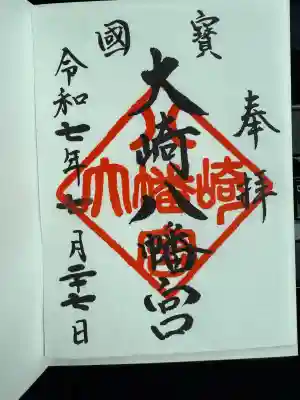 奉拝
國寶
大崎八幡宮
令和七年七月二十七日
大崎八幡宮